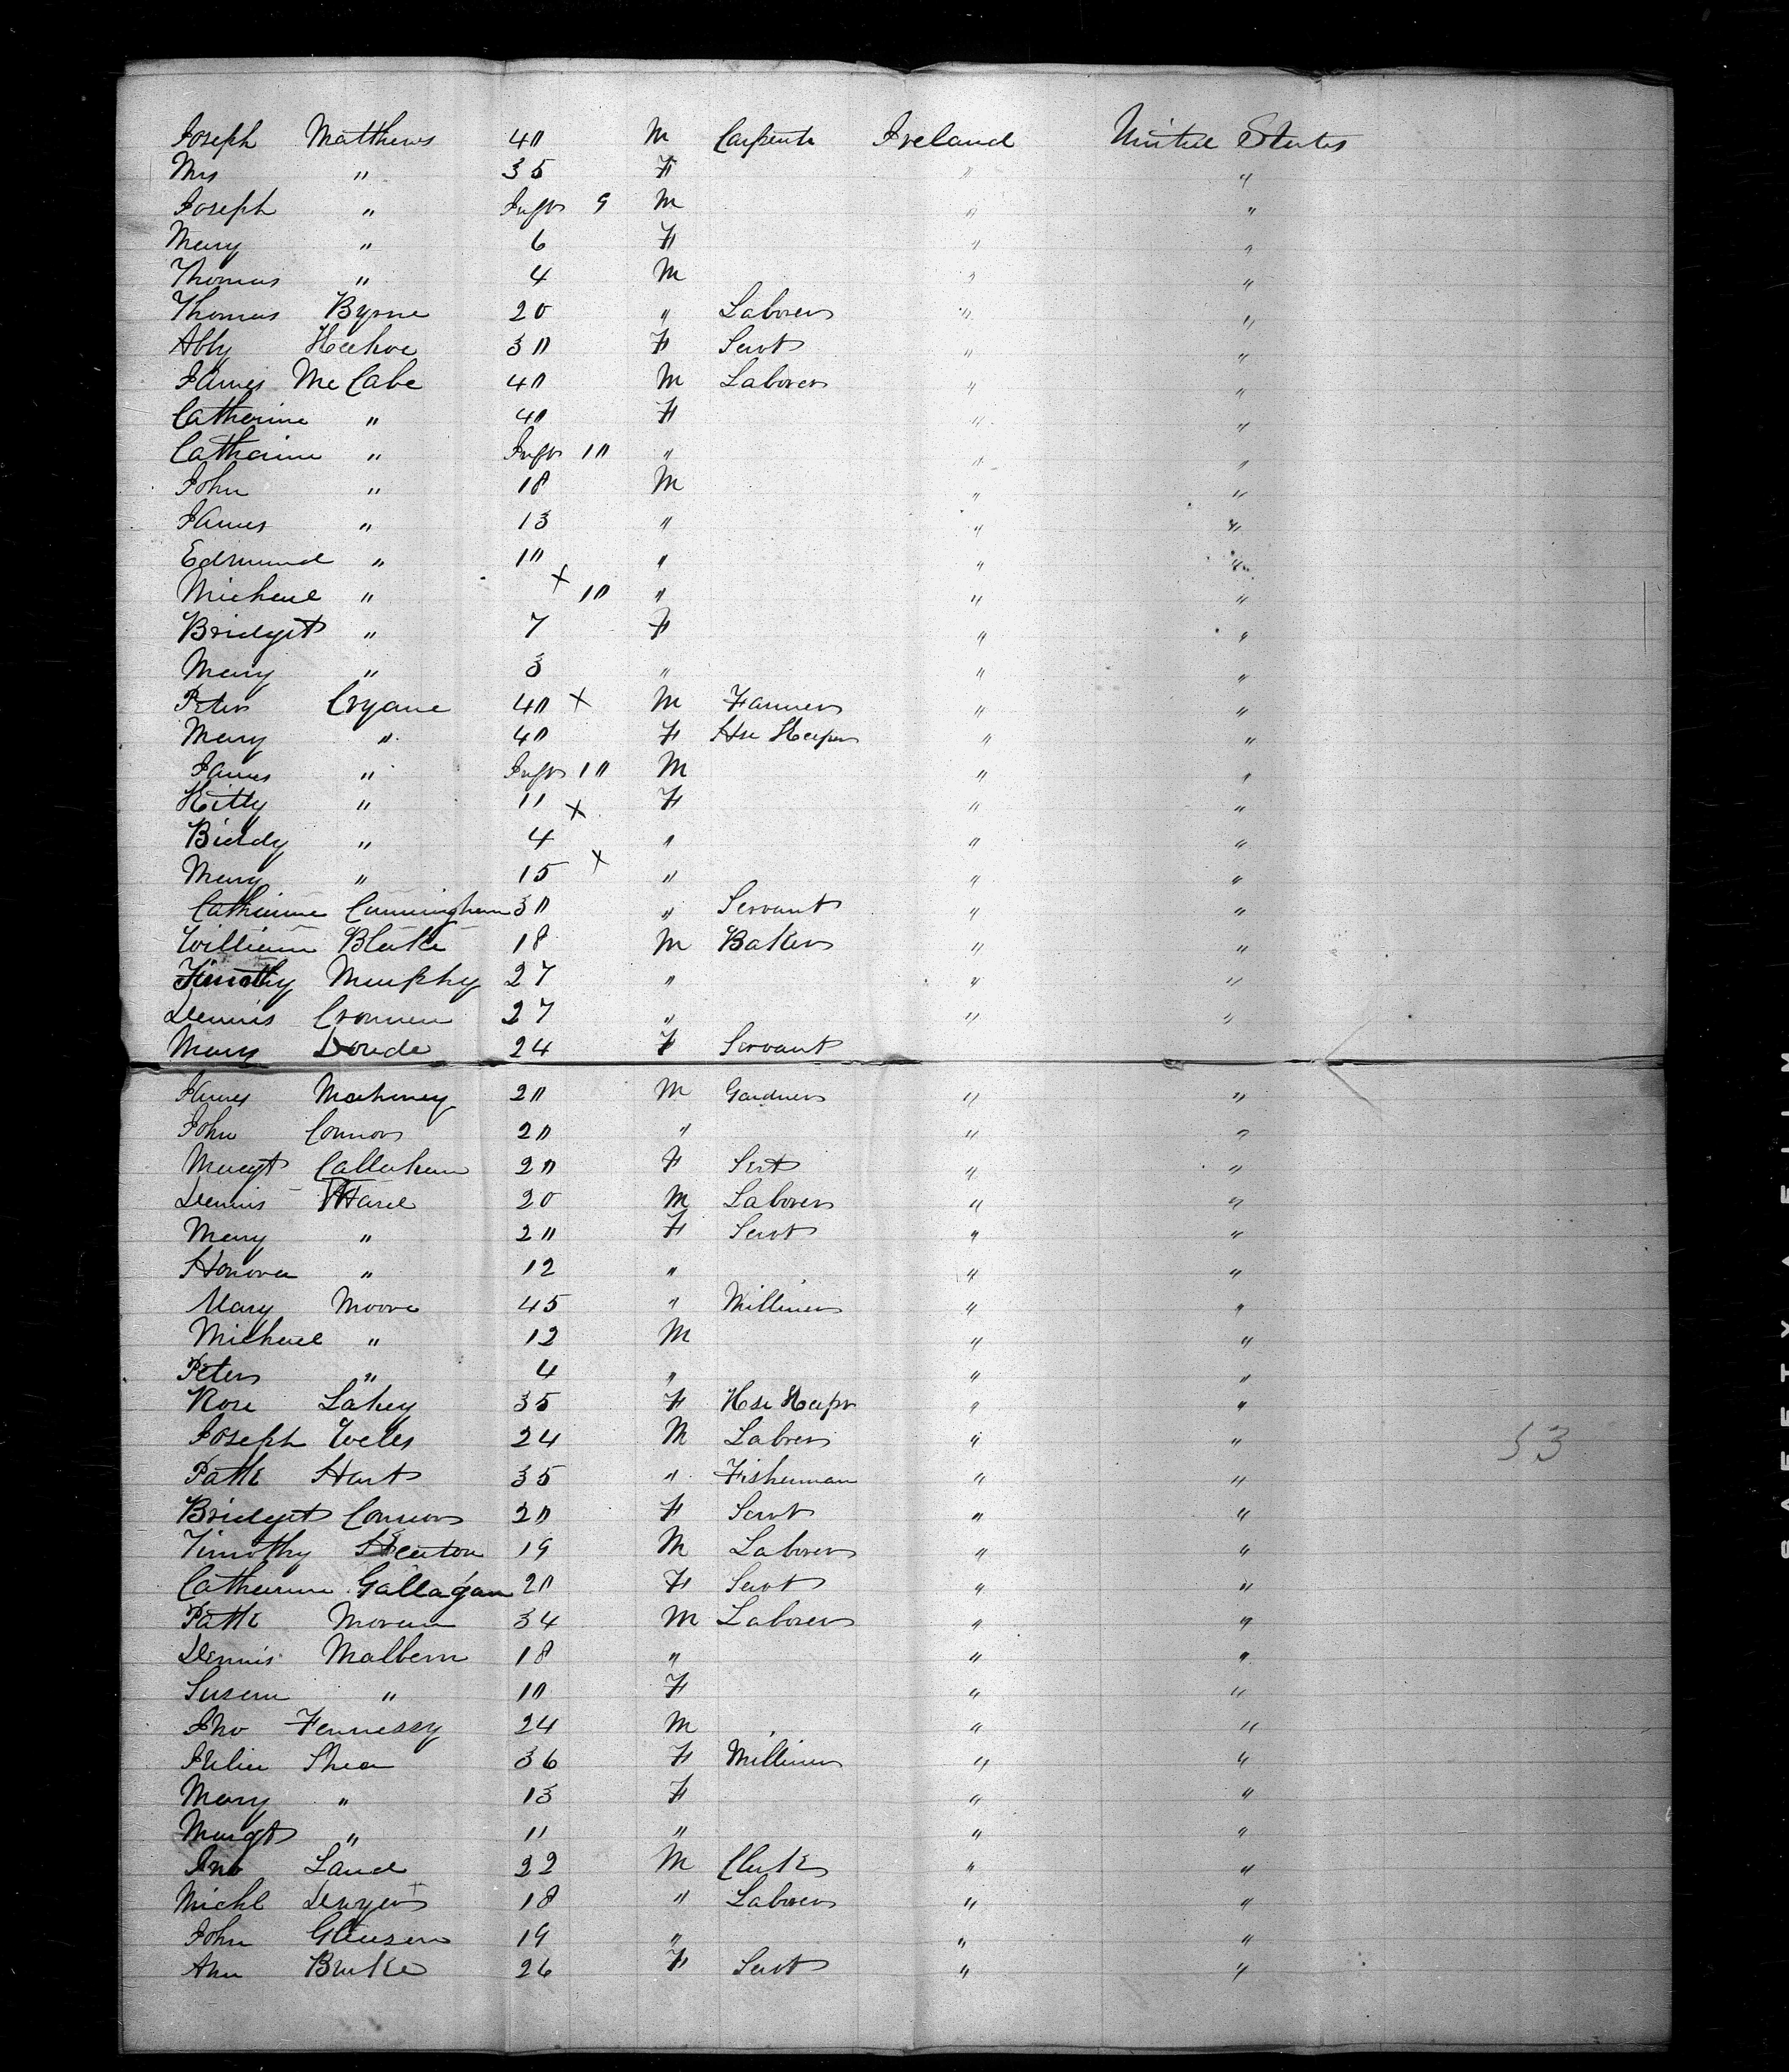 Joseph Matthews 40 M Carpentr Ireland United States
Mrs " 35 F " "
Joseph " Inft 9 M " "
Mary " 6 F " "
Thomas " 4 M " "
Thomas Byrne 20 " Laborer " "
Abby Keehoe 30 F Servt " "
James McCabe 40 M Laborer " "
Catherine " 40 F " "
Catherine " Inft 10 " " "
John " 18 M " "
James " 13 " " "
Edmund " 10 " " "
Michael " x 10 " " "
Bridget " 7 F " "
Mary " 3 " " "
Peter Cryane 40 x M Farmer " "
Mary " 40 F Hse Keeper " "
James " Inft 10 M " "
Kitty " 11 x F " "
Biddy " 4 " " "
Mary " 15 x " " "
Catherine Cunningham 30 " Servant " "
William Blake 18 M Baker " "
Timothy Murphy 27 " " "
Dennis Cronnen 27 " " "
Mary 24 F Servant
James Mahoney 20 M Gardner " "
John Connor 20 " " "
Margt Callahan 20 F Sert " "
Dennis 20 M Laborer " "
Mary " 20 F Servt " "
Honora " 12 " " "
Mary Moore 45 " Milliner " "
Michael " 12 M " "
Peter " 4 " " "
Rose Lahey 35 F Hse Keepr " "
Joseph Weles 24 M Labrer " "
53
Patk Hart 35 " Fisherman " "
Bridget Connors 20 F Servt " "
Timothy 19 M Laborer " "
Catherine Gallagan 20 F Servt " "
Patk Moran 34 M Laborer " "
Dennis Malbern 18 " " "
Susan " 10 F " "
Jno Fennessy 24 M " "
Julia Shea 36 F Milliner " "
Mary " 13 F " "
Margt " 11 " " "
Jno Land 22 M Clerk " "
Michl Dwyer 18 " Laborer " "
John Gleeson 19 " " "
Ann Burke 26 F Servt " "
SAFETY FILM